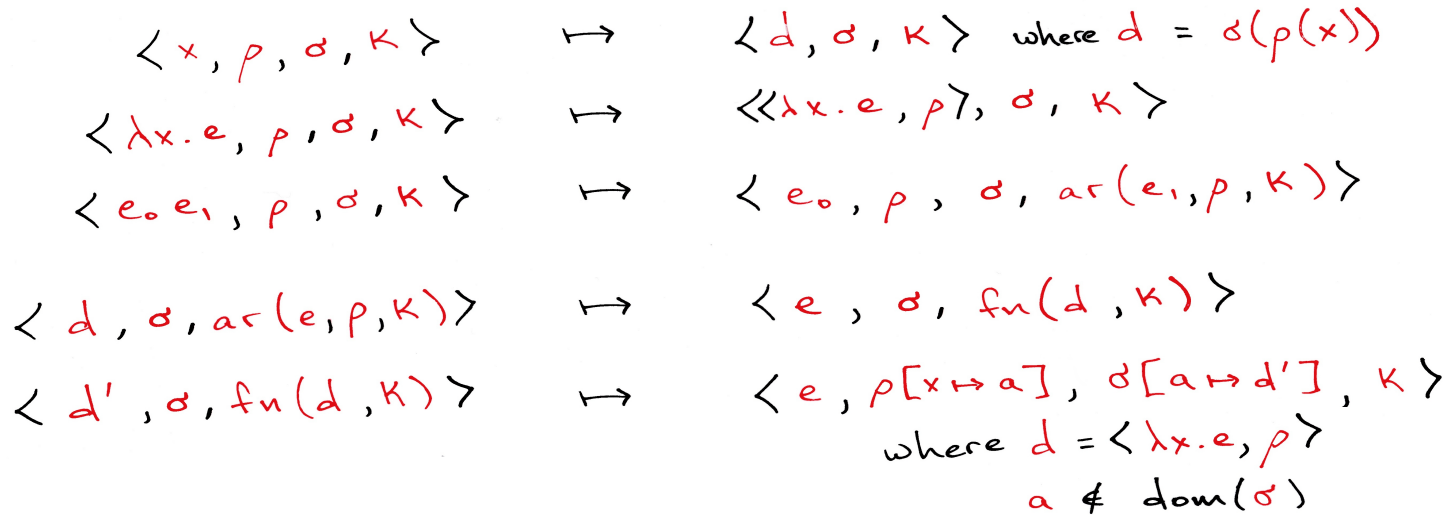 < x, ρ, σ, κ > ↦ < d, σ, κ > where d = σ(ρ(x))
< λx.e, ρ, σ, κ > ↦ <<λx.e, ρ>, σ, κ >
< e₀ e₁, ρ, σ, κ > ↦ < e₀, ρ, σ, ar(e₁, ρ, κ) >
< d, σ, ar(e, ρ, κ) > ↦ < e, σ, fn(d, κ) >
< d', σ, fn(d, κ) > ↦ < e, ρ[x ↦ a], σ[a ↦ d'], κ >
where d = < λx.e, ρ >
a ∉ dom(σ)